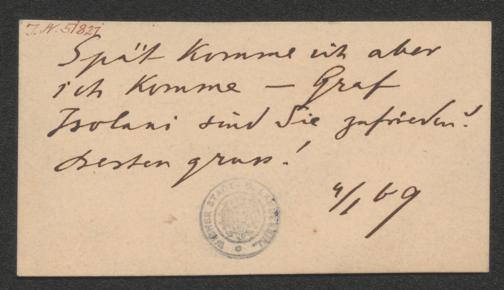 J. N. 51827
Spät komme ich aber
ich komme – Graf
Isolani sind Sie zufrieden?
besten gruss!
4/1 69
WIENER STADT-